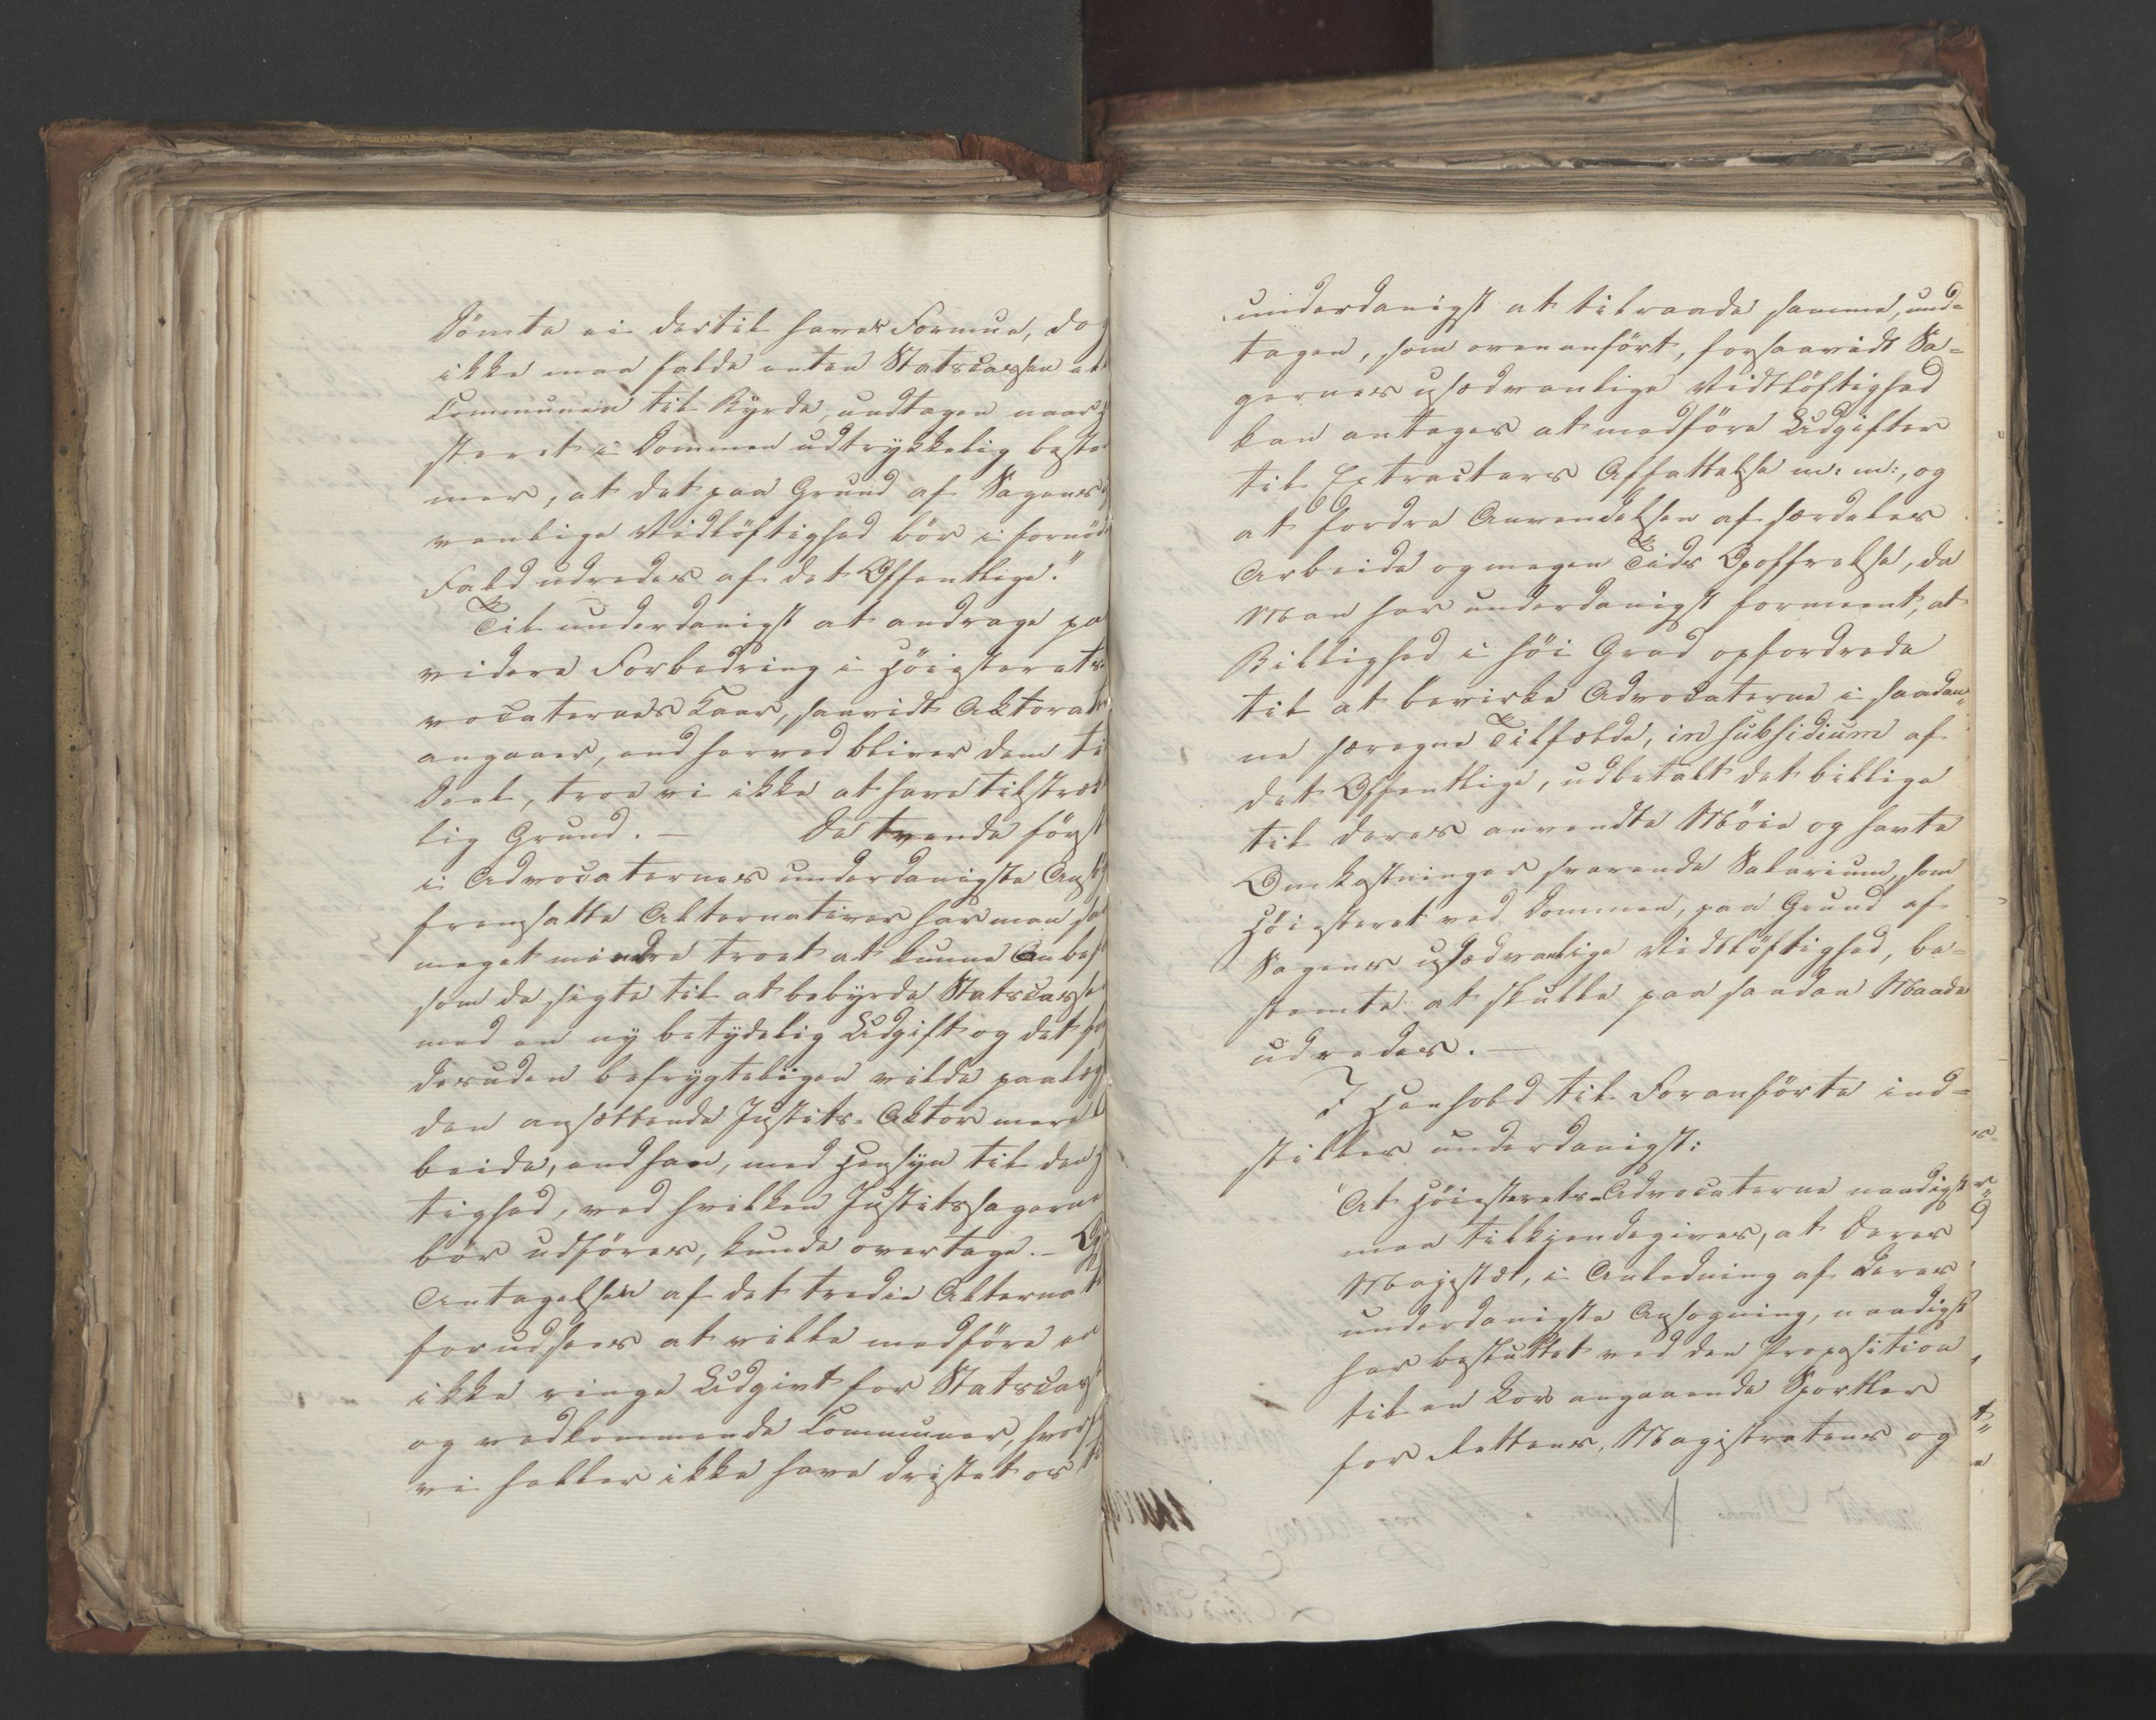 dömte ei dertil haver Formue, dog
ikke maa falde enten Statscassen ell
Communen til Byrde, undtagen naar
steret i Dommen udtrykkelig bestem
mer, at det paa Grund af Sagens
vanlige Vidtlöftighed bör i fornöd
Fald udredes af det Offentlige."
Til underdanigst at andrage pa
videre Forbedring i Höiesterets
vocaternes Kaar, saavidt Aktorat
angaaer, end herved bliver dem ti
Deel, troe vi ikke at have tilstræk
lig Grund. — De tvende först
i Advocaternes underdanigste Ansö
fremsatte Alternativer har man saa
meget mindre troet at kunne Anbef
som de sigte til at bebyrde Statscasse
med en ny betydelig Udgift og det fö
desuden befrygteligen vilde paalæg
den ansættende Justits-Aktor mere
beide, end han, med Hensyn til den
tighed, ved hvilken Justitssagerne
bör udföres, kunde overtage. –
Antagelsen af det tredie Alternat
forudsees at ville medföre en
ikke ringe Udgivt for Statscass
og vedkommende Communer, hvor
vi heller ikke have dristet os
underdanigst at tilraade samme, und-
tagen, som ovenanfört, forsaavidt Sa-
gernes usædvanlige Vidtlöftighed
kan antages at medföre Udgifter
til Extracters Affattelse m: m:, og
at fordre Anvendelsen af særdeles
Arbeide og megen Tids Opoffrelse, da
Man har underdanigst formeent, at
Billighed i höi Grad opfordrede
til at bevirke Advocaterne i saadan-
ne særegne Tilfælde, in subsidium af
det Offentlige, udbetalt det billige
til deres anvendte Möie og havte
Omkostninger svarende Salarium, som
Höiesteret ved Dommen, paa Grund af
Sagens usædvanlige Vidtlöftighed, be-
stemte at skulle paa saadan Maade
udredes. —
I Henhold til Foranförte ind-
stilles underdanigst:
"At Höiesterets-Advocaterne naadigst
maa tilkjendegives, at Deres
Majestæt, i Anledning af deres
underdanigste Ansogning, naadigst
har besluttet ved den Proposition
til en Lov angaaende Sportler
for Rettens, Magistratens og